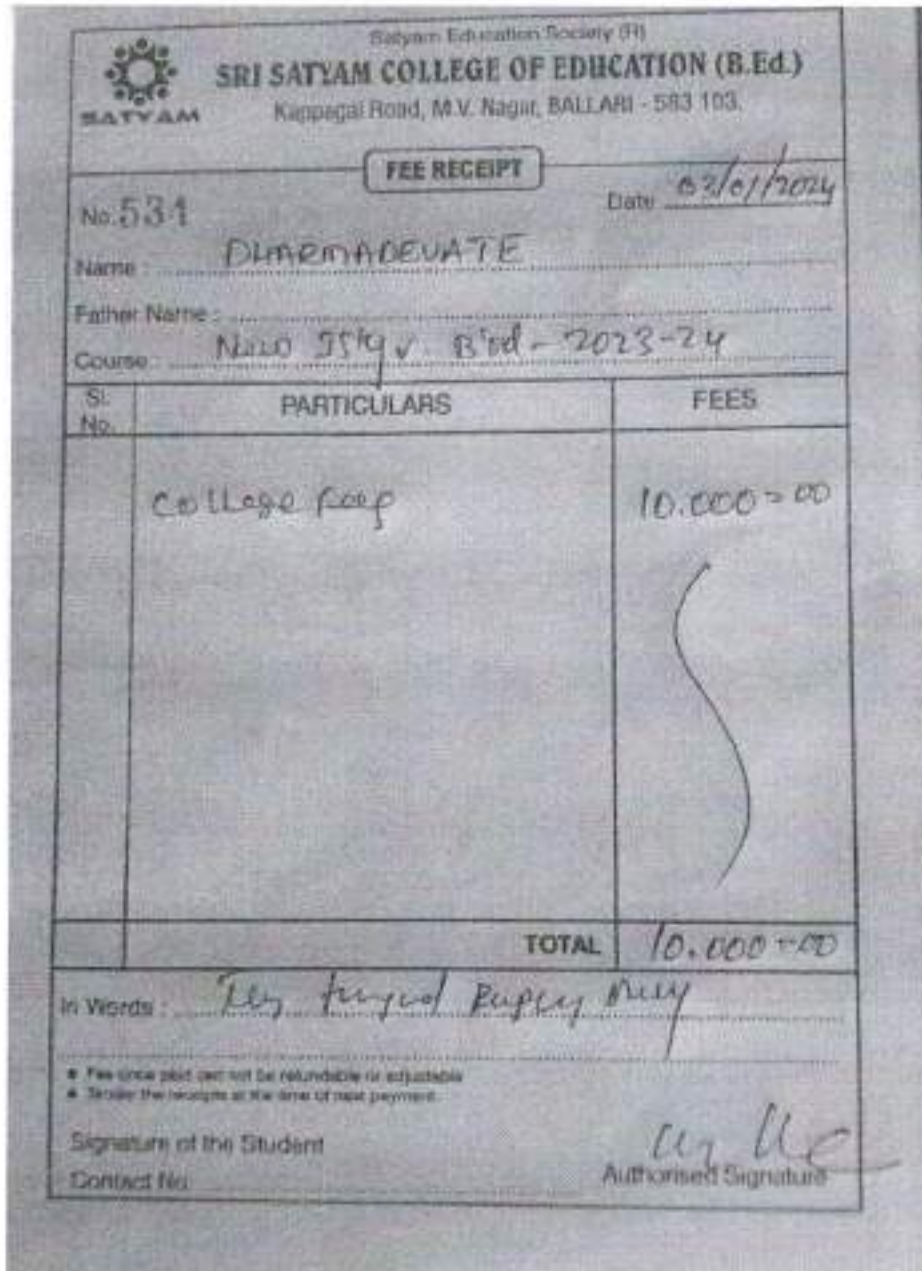 Satyam Education Society (R)
SRI SATYAM COLLEGE OF EDUCATION (B.Ed.)
SATYAM
Kappagal Road, M.V. Nagar, BALLARI - 583 103.
FEE RECEIPT
No. 531
Date 03/01/2024
Name : DHARMADEVATE
Father Name :
Course : B'ed - 2023-24
Sl. No. PARTICULARS FEES
College fees 10.000=00
TOTAL 10.000=00
In Words : Ten Rupees Only
Fee once paid can not be refundable or adjustable
the receipts at the time of next payment.
Signature of the Student
Contact No.
Authorised Signature